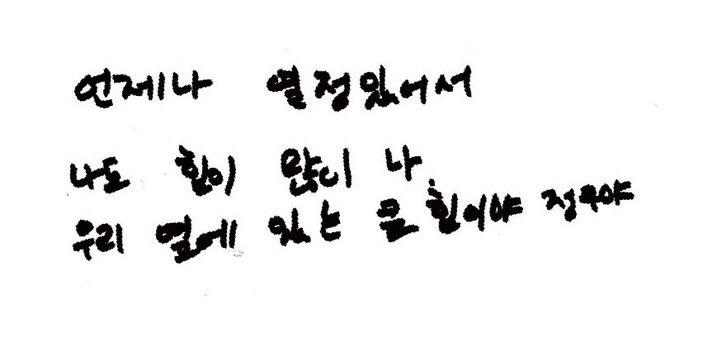 언제나 열정있어서
나도 힘이 많이 나.
우리 옆에 있는 큰 힘이야 정우야